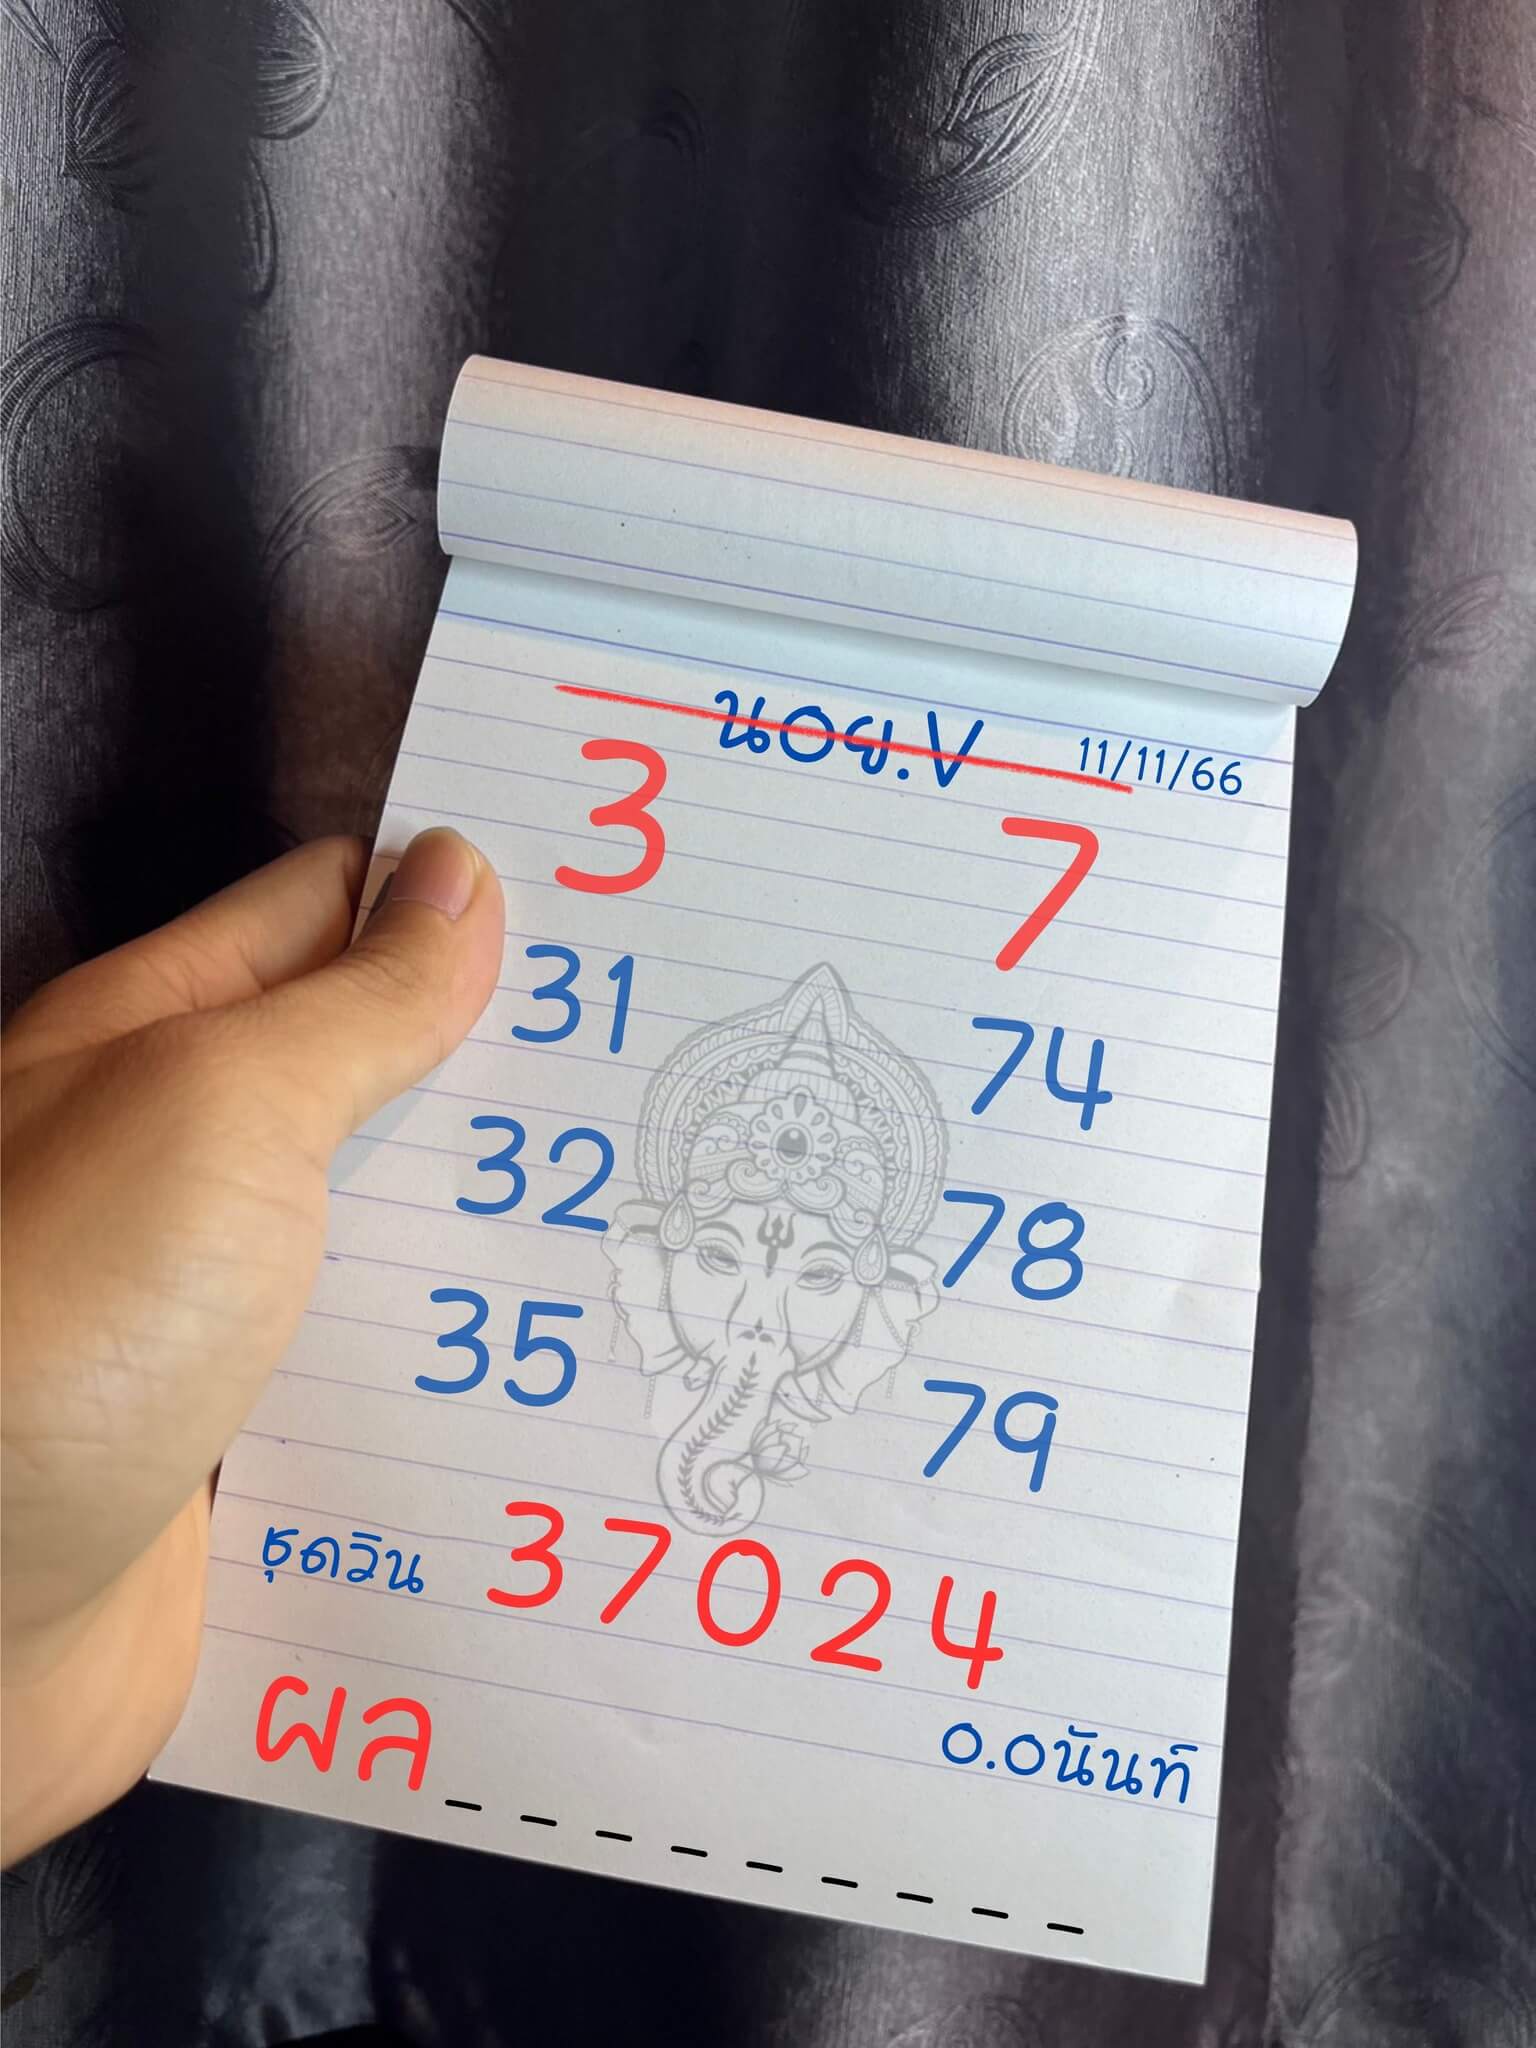 นอย.V 11/11/66
3 7
31 74
32 78
35 79
ชุดวิน 37024
ผล_ _ _ _ _ _ _ _ _
อ.อนันท์